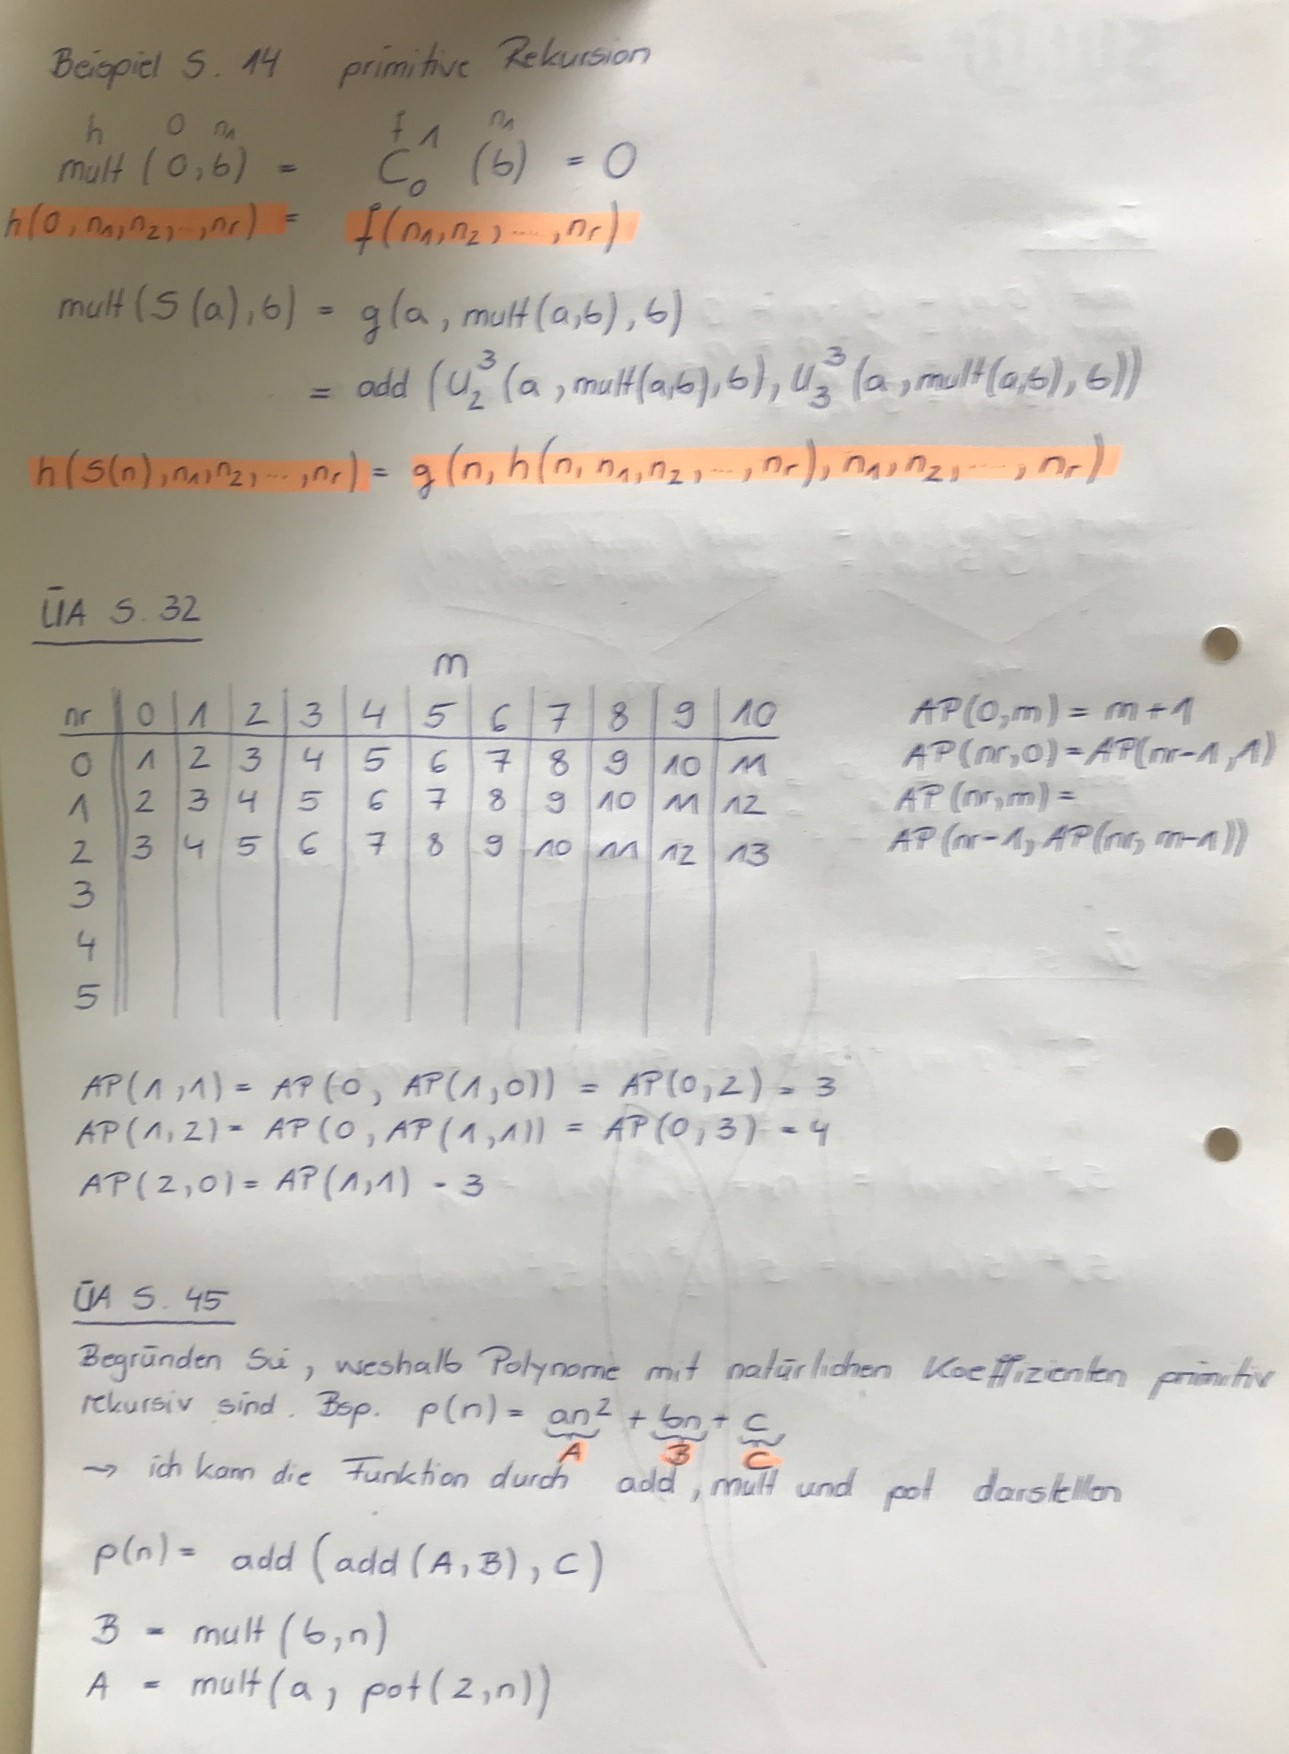 Beispiel S. 14 primitive Rekursion
h 0 n₁ f 1 n₁
mult (0,b) = C₀¹ (b) = 0
h(0, n₁, n₂, ..., nr) = f(n₁, n₂, ..., nr)
mult(S(a), b) = g(a, mult(a,b), b)
= add (U₂³(a, mult(a,b), b), U₃³(a, mult(a,b), b))
h(S(n), n₁, n₂, ..., nr) = g(n, h(n, n₁, n₂, ..., nr), n₁, n₂, ..., nr)
ÜA S. 32
m
nr 0 1 2 3 4 5 6 7 8 9 10
0 1 2 3 4 5 6 7 8 9 10 11
1 2 3 4 5 6 7 8 9 10 11 12
2 3 4 5 6 7 8 9 10 11 12 13
3
4
5
AP(0,m) = m+1
AP(nr,0) = AP(nr-1,1)
AP(nr,m) =
AP(nr-1, AP(nr, m-1))
AP(1,1) = AP(0, AP(1,0)) = AP(0,2) = 3
AP(1,2) = AP(0, AP(1,1)) = AP(0,3) = 4
AP(2,0) = AP(1,1) = 3
ÜA S. 45
Begründen Sie, weshalb Polynome mit natürlichen Koeffizienten primitiv
rekursiv sind. Bsp. p(n) = an² + bn + c
A B C
→ ich kann die Funktion durch add, mult und pot darstellen
p(n) = add (add (A, B), C)
B = mult (b,n)
A = mult (a, pot(2,n))